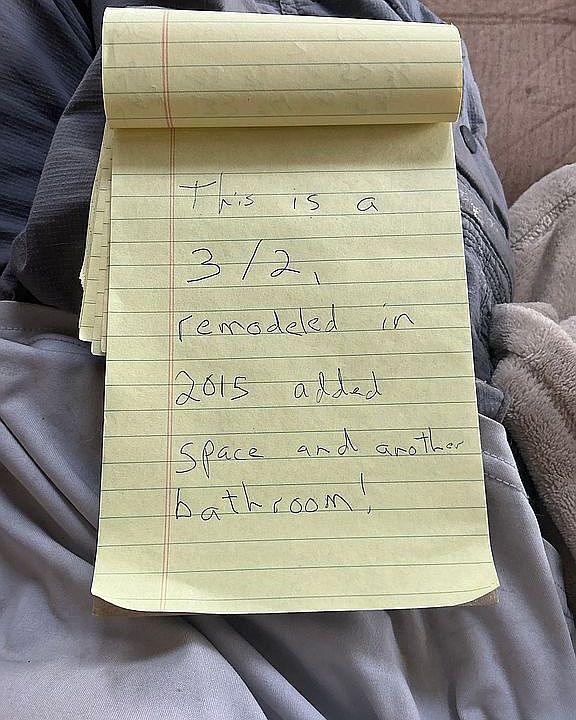 This is a
3/2,
remodeled in
2015 added
space and another
bathroom!